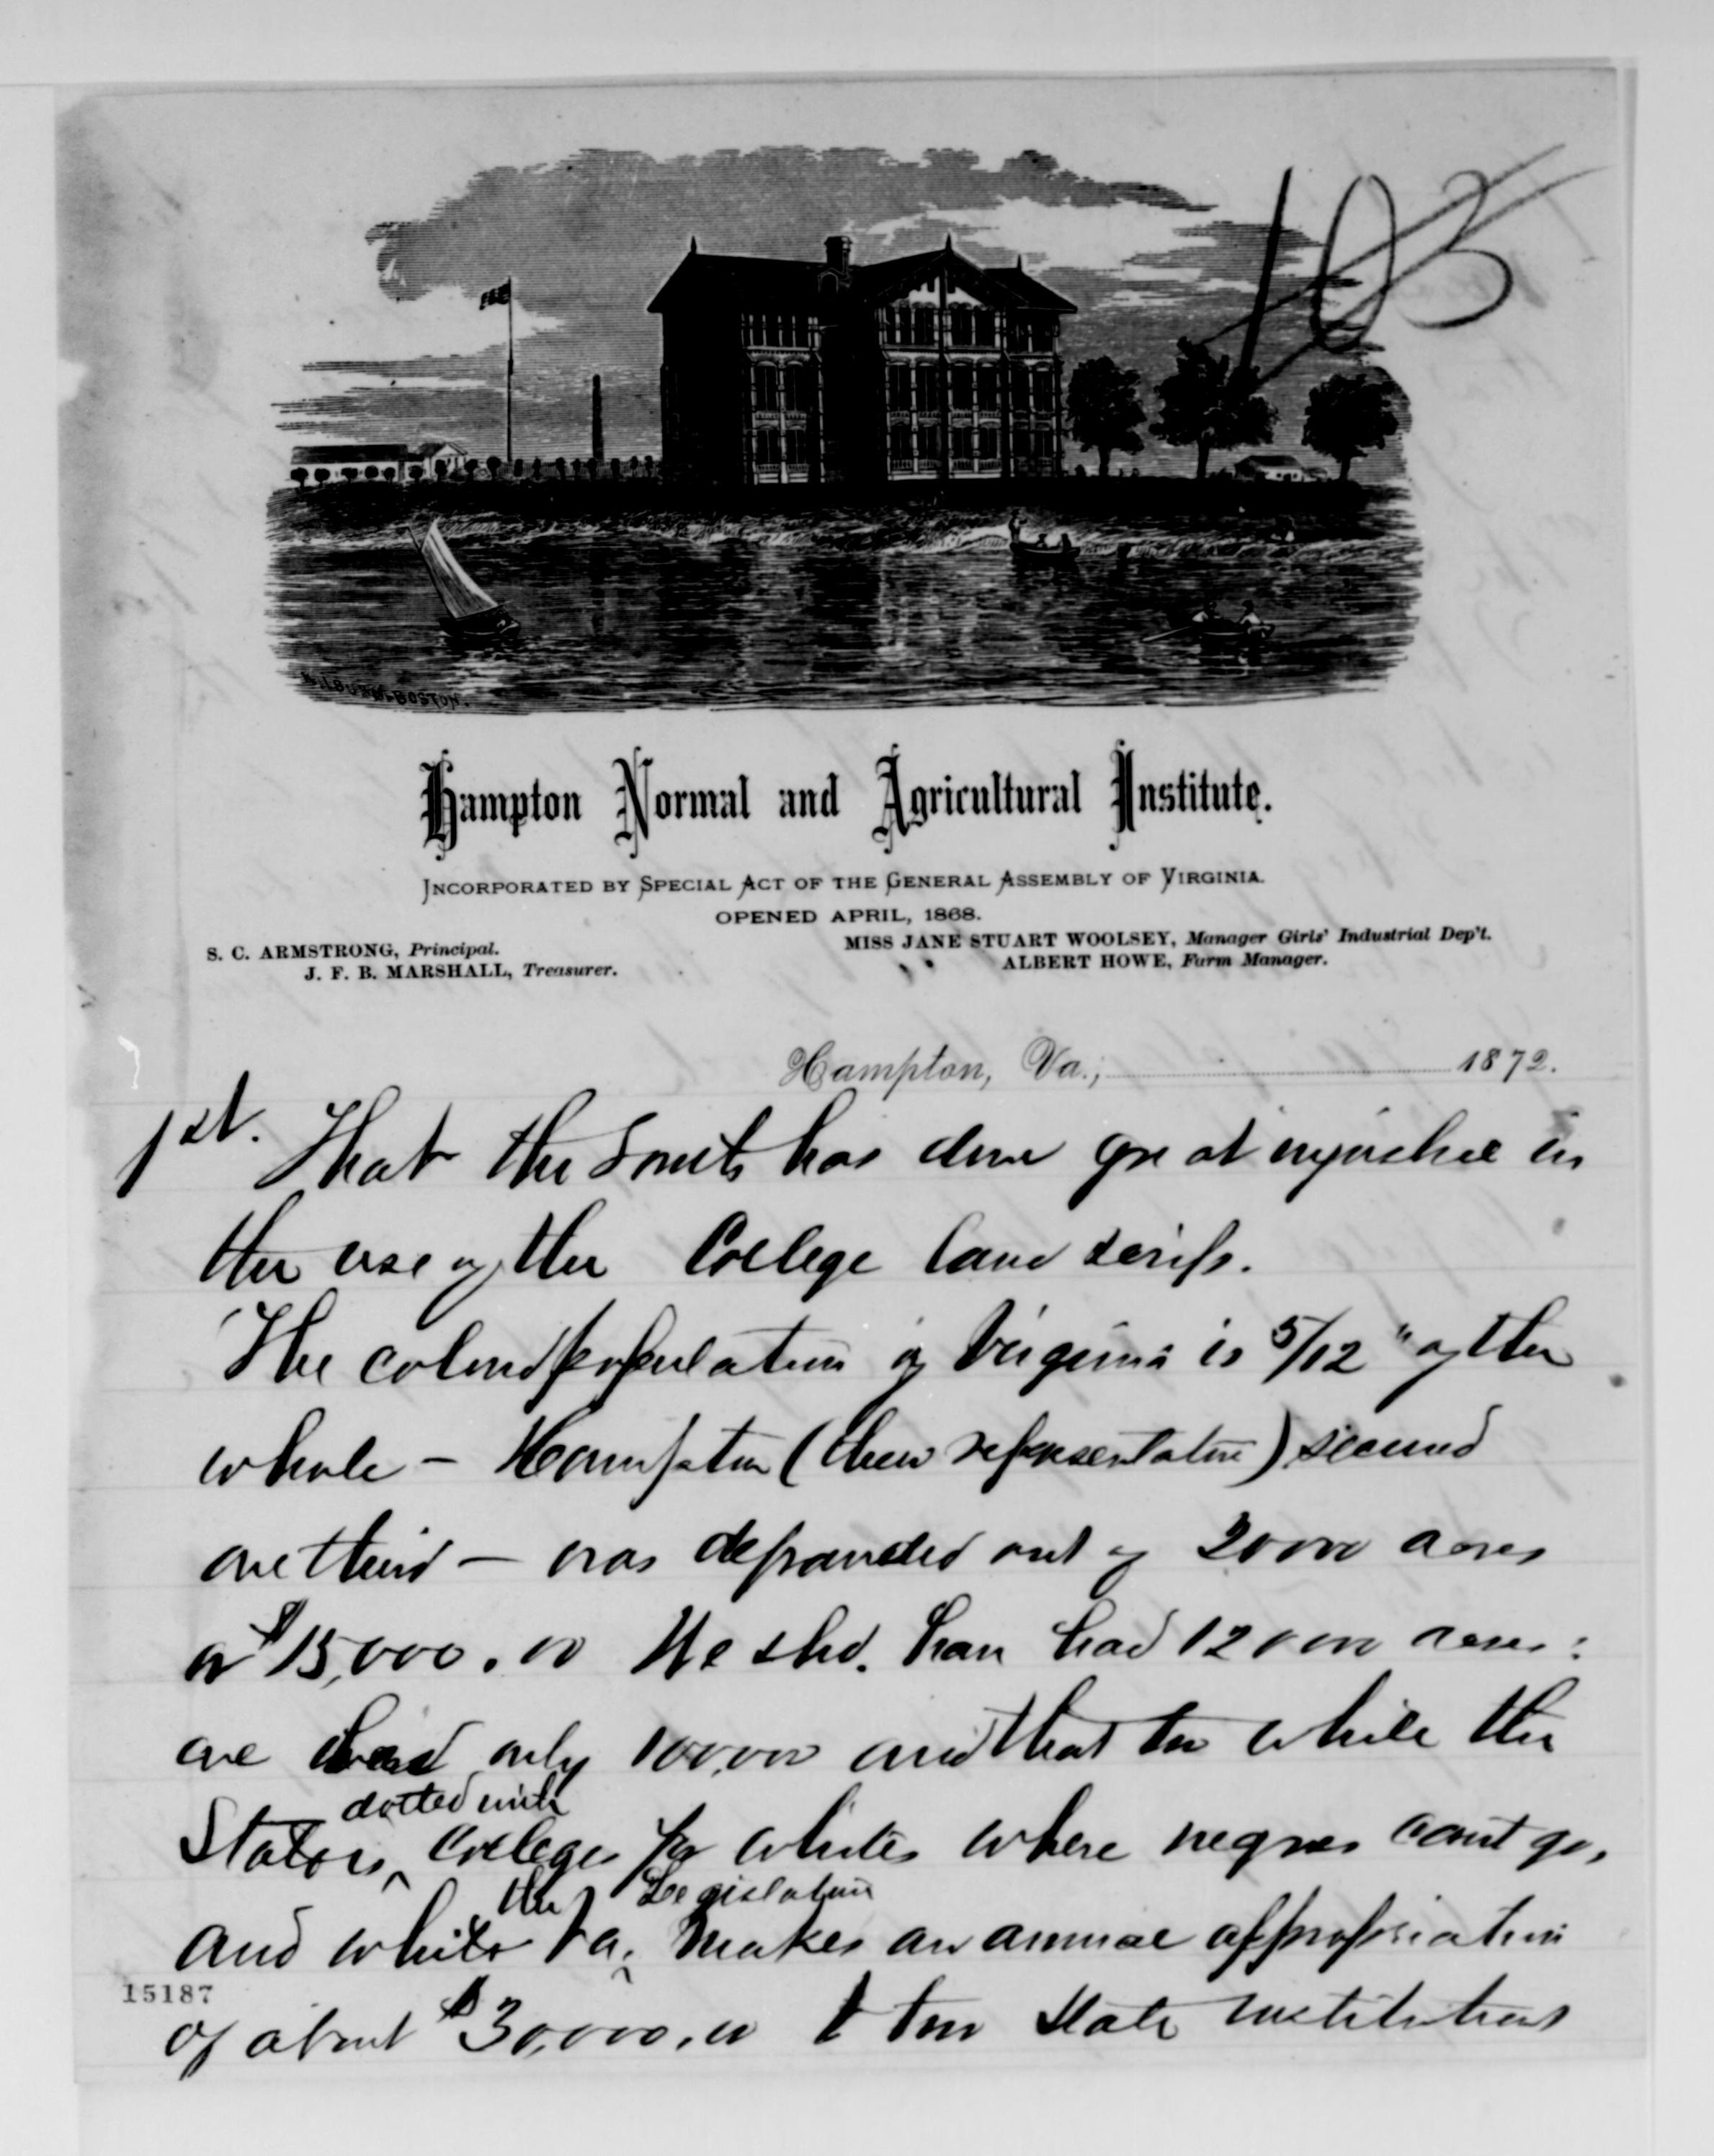 105
KILBURN-BOSTON.
Hampton Normal and Agricultural Institute.
INCORPORATED BY SPECIAL ACT OF THE GENERAL ASSEMBLY OF VIRGINIA.
OPENED APRIL, 1868.
S. C. ARMSTRONG, Principal.
J. F. B. MARSHALL, Treasurer.
MISS JANE STUART WOOLSEY, Manager Girls' Industrial Dep't.
ALBERT HOWE, Farm Manager.
Hampton, Va., 1872.
1st. That the South has done great injustice in
the use of the College land scrip.
The colored population of Virginia is 5/12" of the
whole - Hampton (their representative) secured
one third - was defrauded out of 20000 acres
or $15,000.00 We shd. have had 120000 acres:
we had only 100,000 and that too while the
State is dotted with Colleges for whites where negroes cant go,
and while the Va. Legislature makes an annual appropriation
15187
of about $30,000.00 to two State institutions